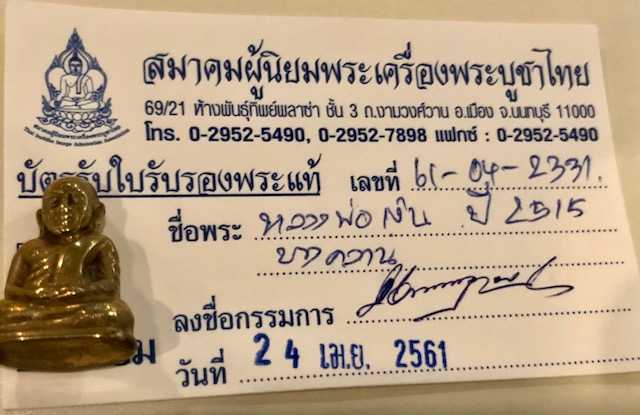 สมาคมผู้นิยมพระเครื่องพระบูชาไทย
69/21 ห้างพันธุ์ทิพย์พลาซ่า ชั้น 3 ถ.งามวงศ์วาน อ.เมือง จ.นนทบุรี 11000
โทร. 0-2952-5490, 0-2952-7898 แฟกซ์ : 0-2952-5490
บัตรรับใบรับรองพระแท้ เลขที่ 61-04-2331
ชื่อพระ หลวงพ่อเงิน ปี 2515
บางคลาน
ลงชื่อกรรมการ
วันที่ 24 เม.ย. 2561